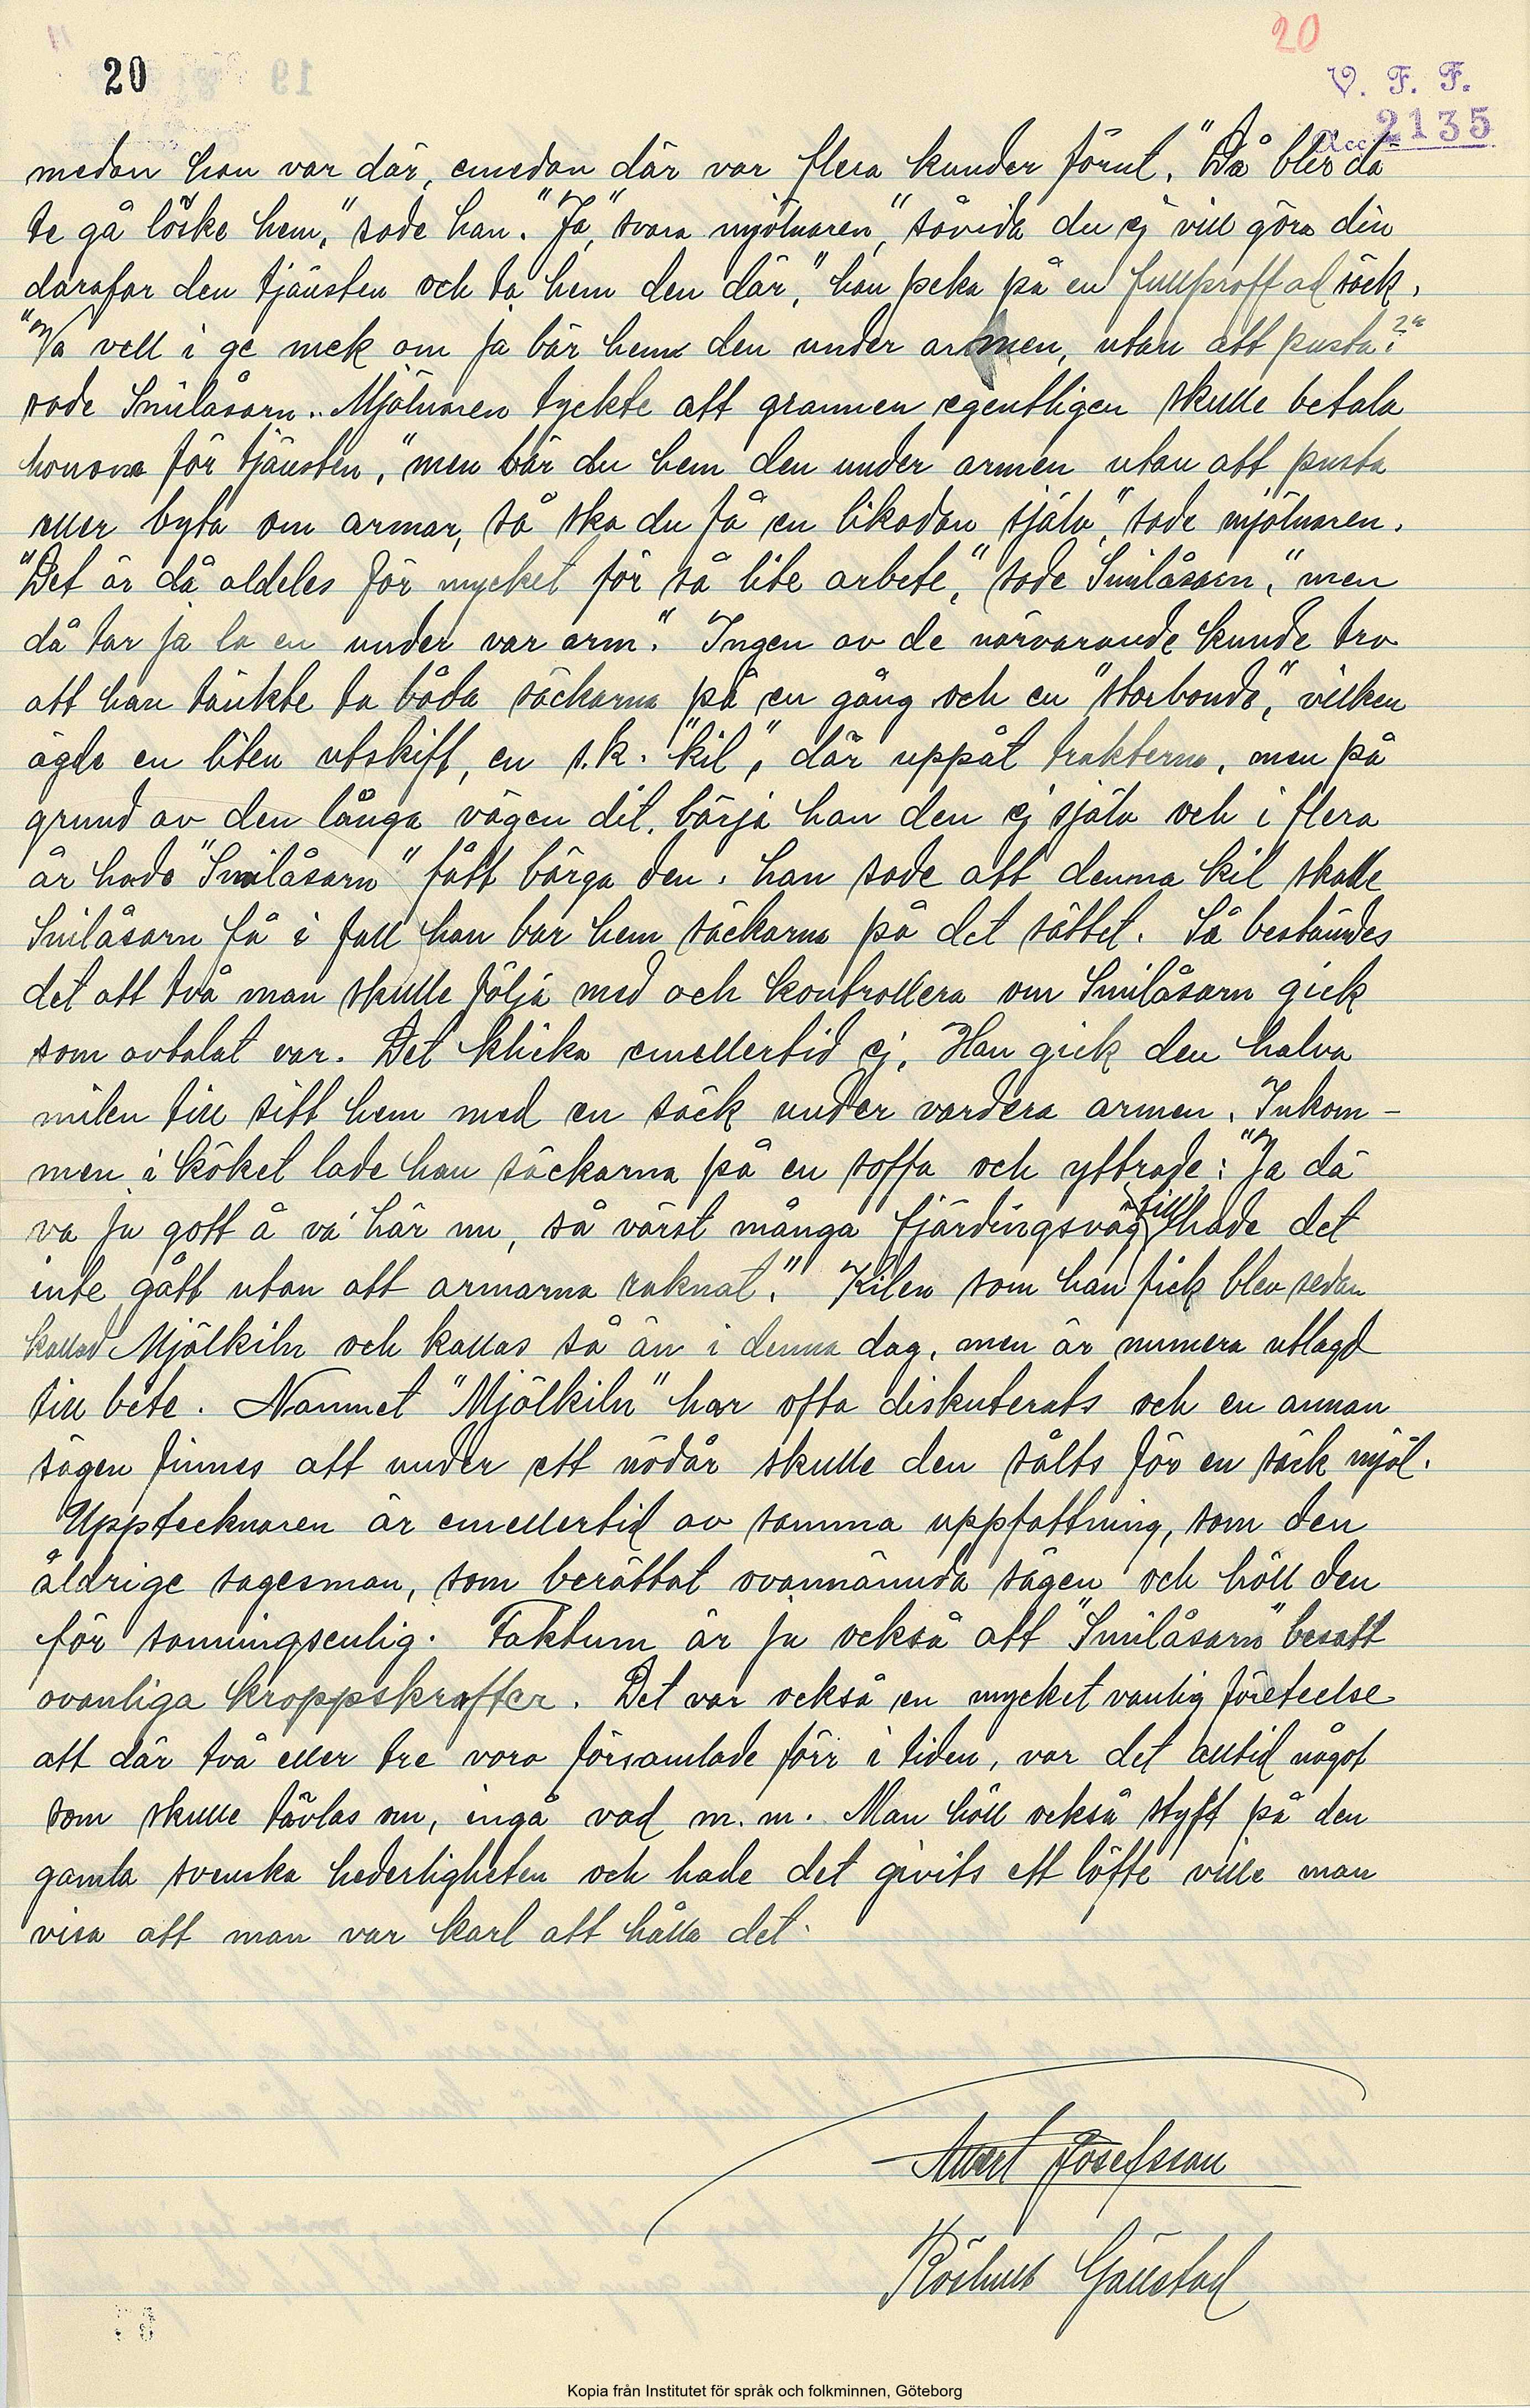 20
20
V. F. F.
Acc 2135
medan han var där, emedan där var flera kunder förut. "Då blir da
te gå löske hem," sade han. "Ja," svara mjölnaren, "såvida du ej vill göra din
därafar den tjänsten och ta hem den där," han peka på en fullproffad säck.
"Va vell i ge mek om ja bär hem den under armen, utan att pusta?"
sade Smilåsarn. Mjölnaren tyckte att grannen egentligen skulle betala
honom för tjänsten, "men bär du hem den under armen utan att pusta
eller byta om armar, så ska du få en likadan själv," sade mjölnaren.
"Det är då aldeles för mycket för så lite arbete," sade Smilåsarn, "men
då tar ja la en under var arm." Ingen av de närvarande kunde tro
att han tänkte ta båda säckarna på en gång och en "storbonde", vilken
ägde en liten utskift, en s.k. "kil", där uppåt trakterna, men på
grund av den långa vägen dit, bärja han den ej själv och i flera
år hade "Smilåsarn" fått bärga den. han sade att denna kil skulle
Smilåsarn få i fall han bar hem säckarna på det sättet. Så bestämdes
det att två man skulle följa med och kontrollera om Smilåsarn gick
som avtalat var. Det klicka emellertid ej. Han gick den halva
milen till sitt hem med en säck under vardera armen. Inkom-
men i köket lade han säckarna på en soffa och yttrade: "Ja dä
va ju gott å va här nu, så värst många fjärdingsväg till hade det
inte gått utan att armarna raknat." Kilen som han fick blev sedan
kallad Mjölkiln och kallas så än i denna dag, men är numera utlagd
till bete. Namnet "Mjölkiln" har ofta diskuterats och en annan
sägen finnes att under ett nödår skulle den sålts för en säck mjöl.
Upptecknaren är emellertid av samma uppfattning, som den
åldrige sagesman, som berättat ovannämnda sägen och höll den
för sanningsenlig. Faktum är ju också att "Smilåsarn" besatt
ovanliga kroppskrafter. Det var också en mycket vanlig företeelse
att där två eller tre voro församlade förr i tiden, var det alltid något
som skulle tävlas om, ingå vad m. m. Man höll också styft på den
gamla svenska hederligheten och hade det givits ett löfte ville man
visa att man var karl att hålla det.
Josefsson
Gällstad
Kopia från Institutet för språk och folkminnen, Göteborg